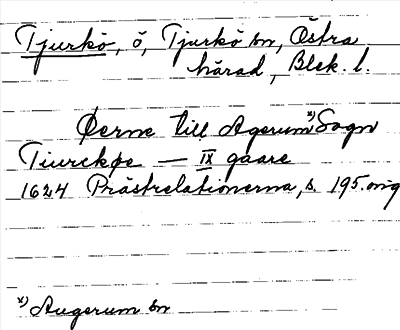 Tjurkö, ö, Tjurkö sn, Östra
härad, Blek. l.
Øerne till Agerum x) Sogn
Tiurckøe — IX gaare
1624 Prästrelationerna, s. 195. orig
x) Augerum sn